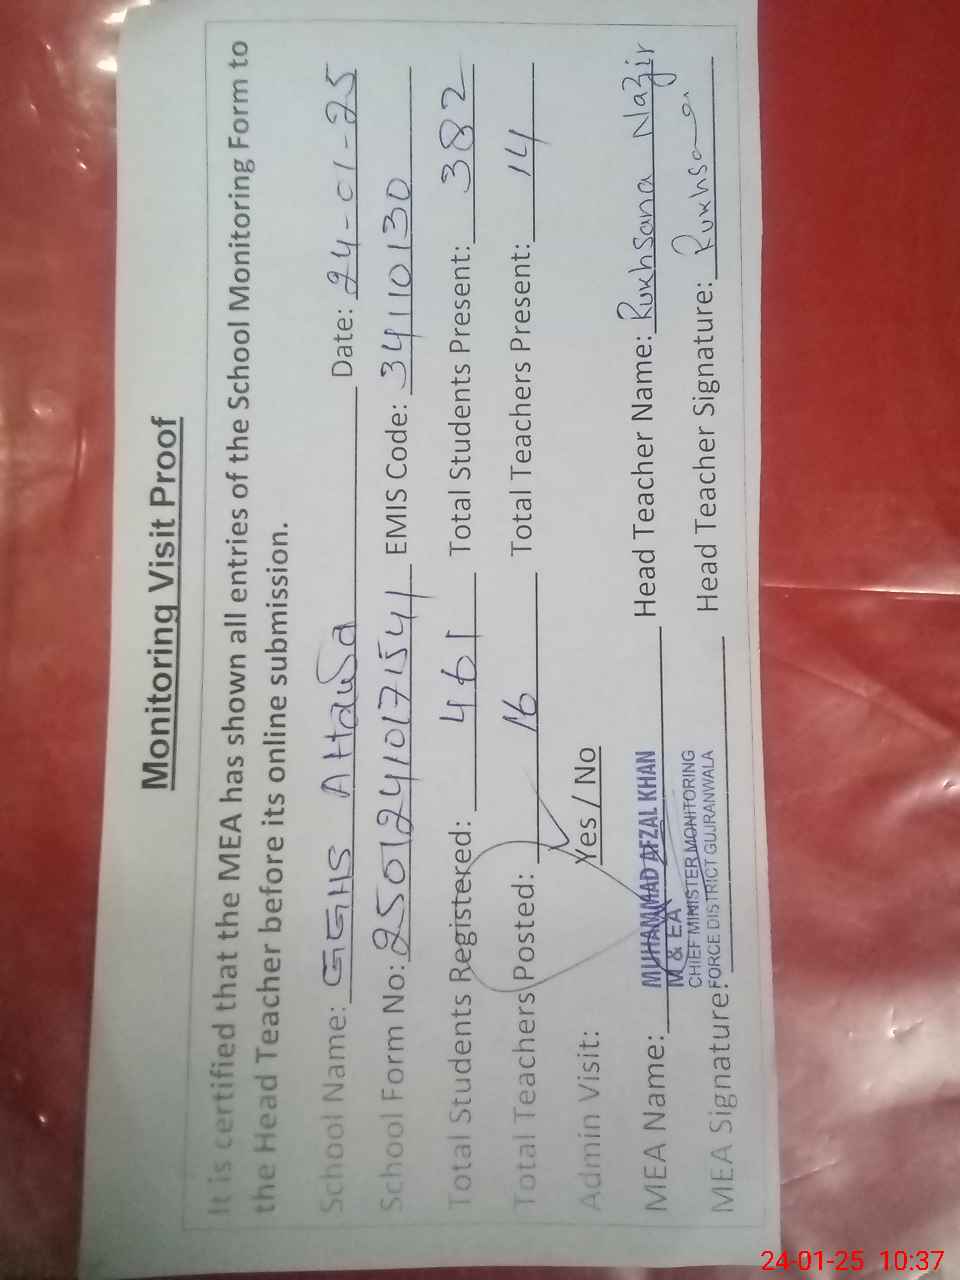 Monitoring Visit Proof
It is certified that the MEA has shown all entries of the School Monitoring Form to
the Head Teacher before its online submission.
School Name: GGHS Attawa Date: 24-01-25
School Form No: 2501241017154 EMIS Code: 34110130
Total Students Registered: 461 Total Students Present: 382
Total Teachers Posted: 16 Total Teachers Present: 14
Admin Visit: Yes / No
MEA Name: MUHAMMAD AFZAL KHAN Head Teacher Name: Rukhsana Nazir
M & EA
CHIEF MINISTER MONITORING
MEA Signature: FORCE DISTRICT GUJRANWALA Head Teacher Signature: Rukhsana
24-01-25 10:37